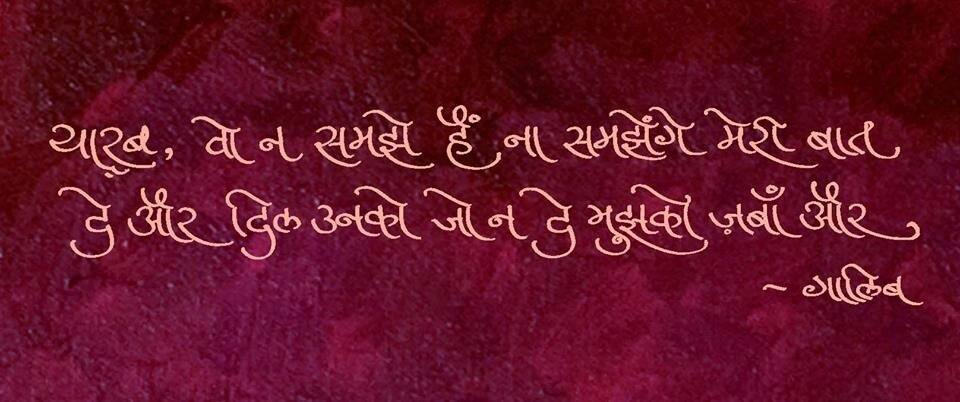 यारब, वो न समझे हैं ना समझेंगे मेरी बात
दे और दिल उनको जो न दे मुझको ज़बाँ और
~ गालिब